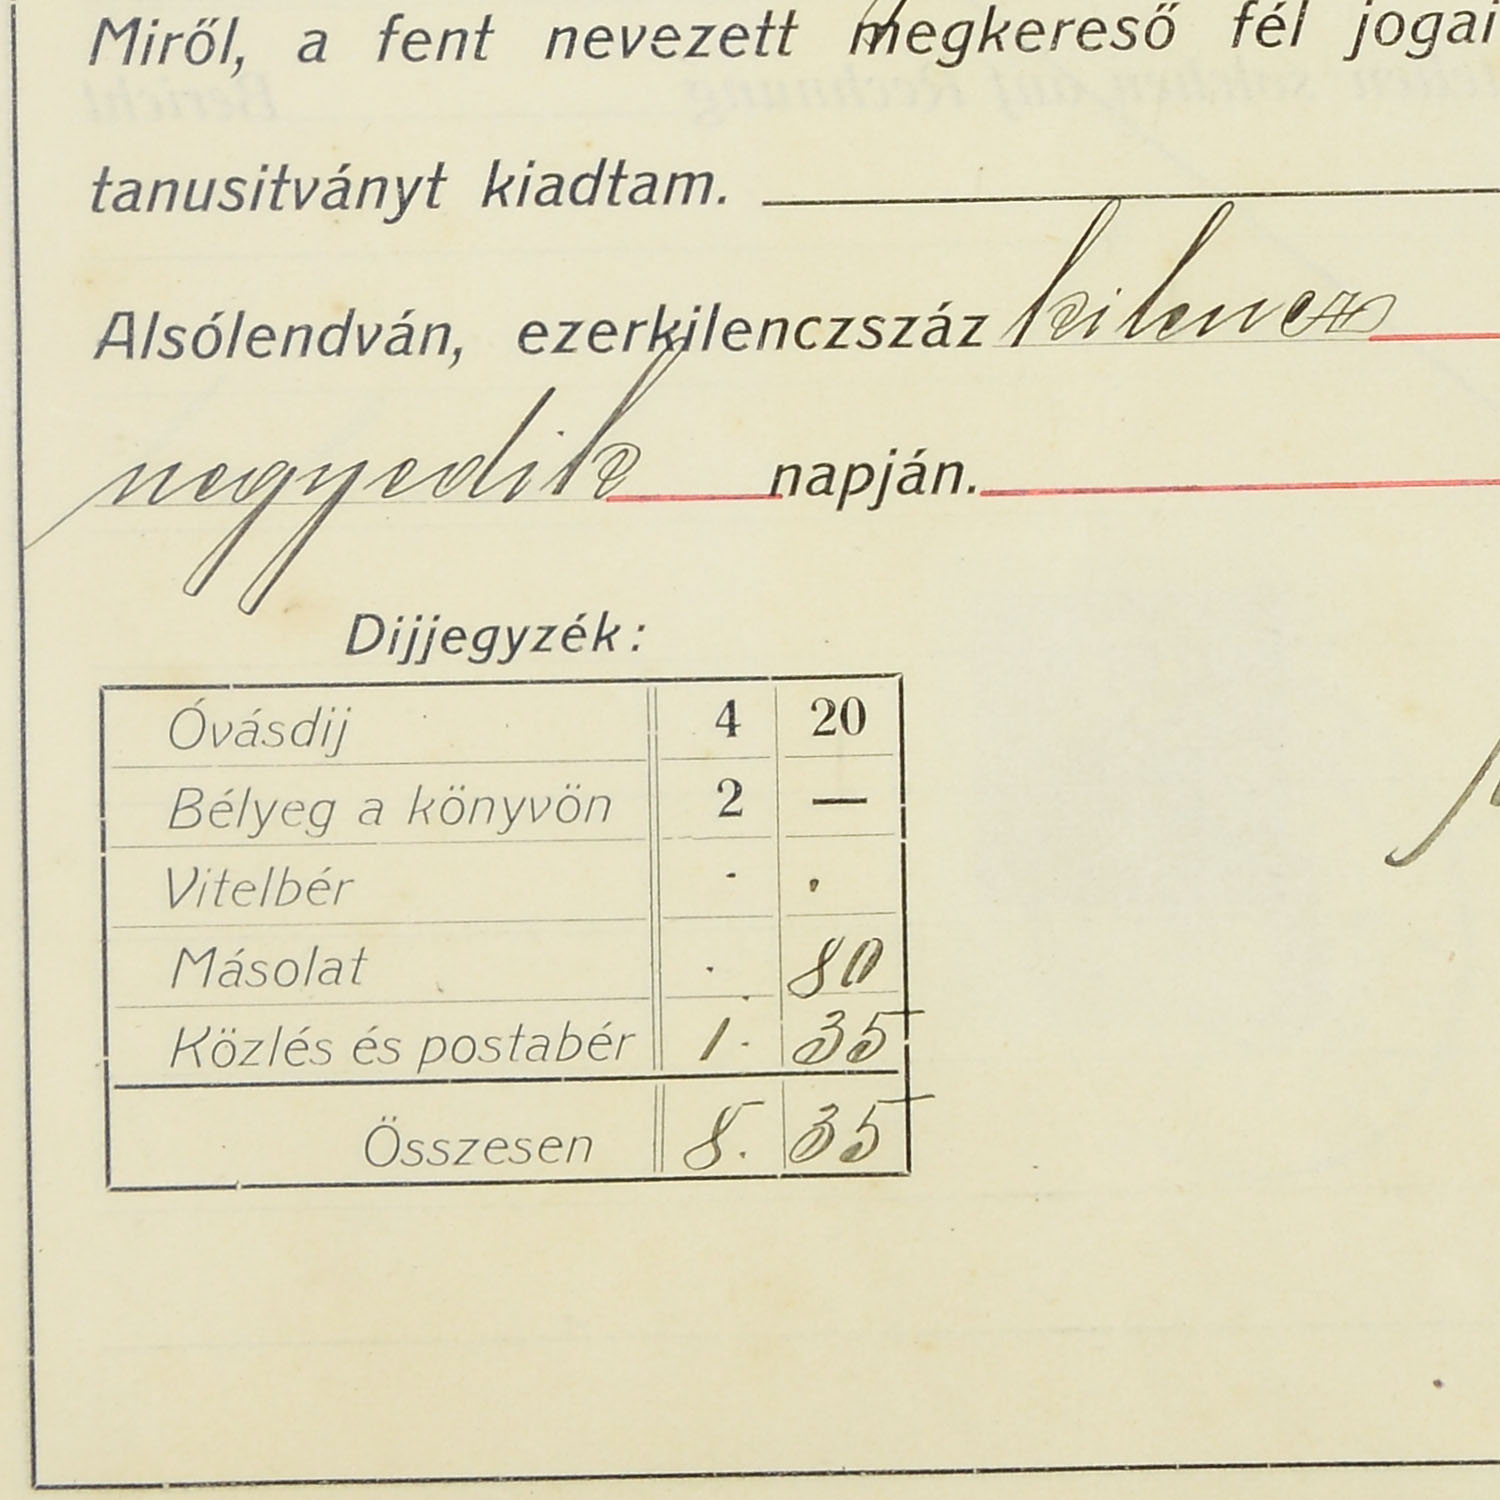 Miről, a fent nevezett megkereső fél jogai
tanusitványt kiadtam.
Alsólendván, ezerkilenczszáz kilencz
negyedik napján.
Dijjegyzék:
Óvásdij 4 20
Bélyeg a könyvön 2 —
Vitelbér - .
Másolat . 80
Közlés és postabér 1. 35
Összesen 8. 35